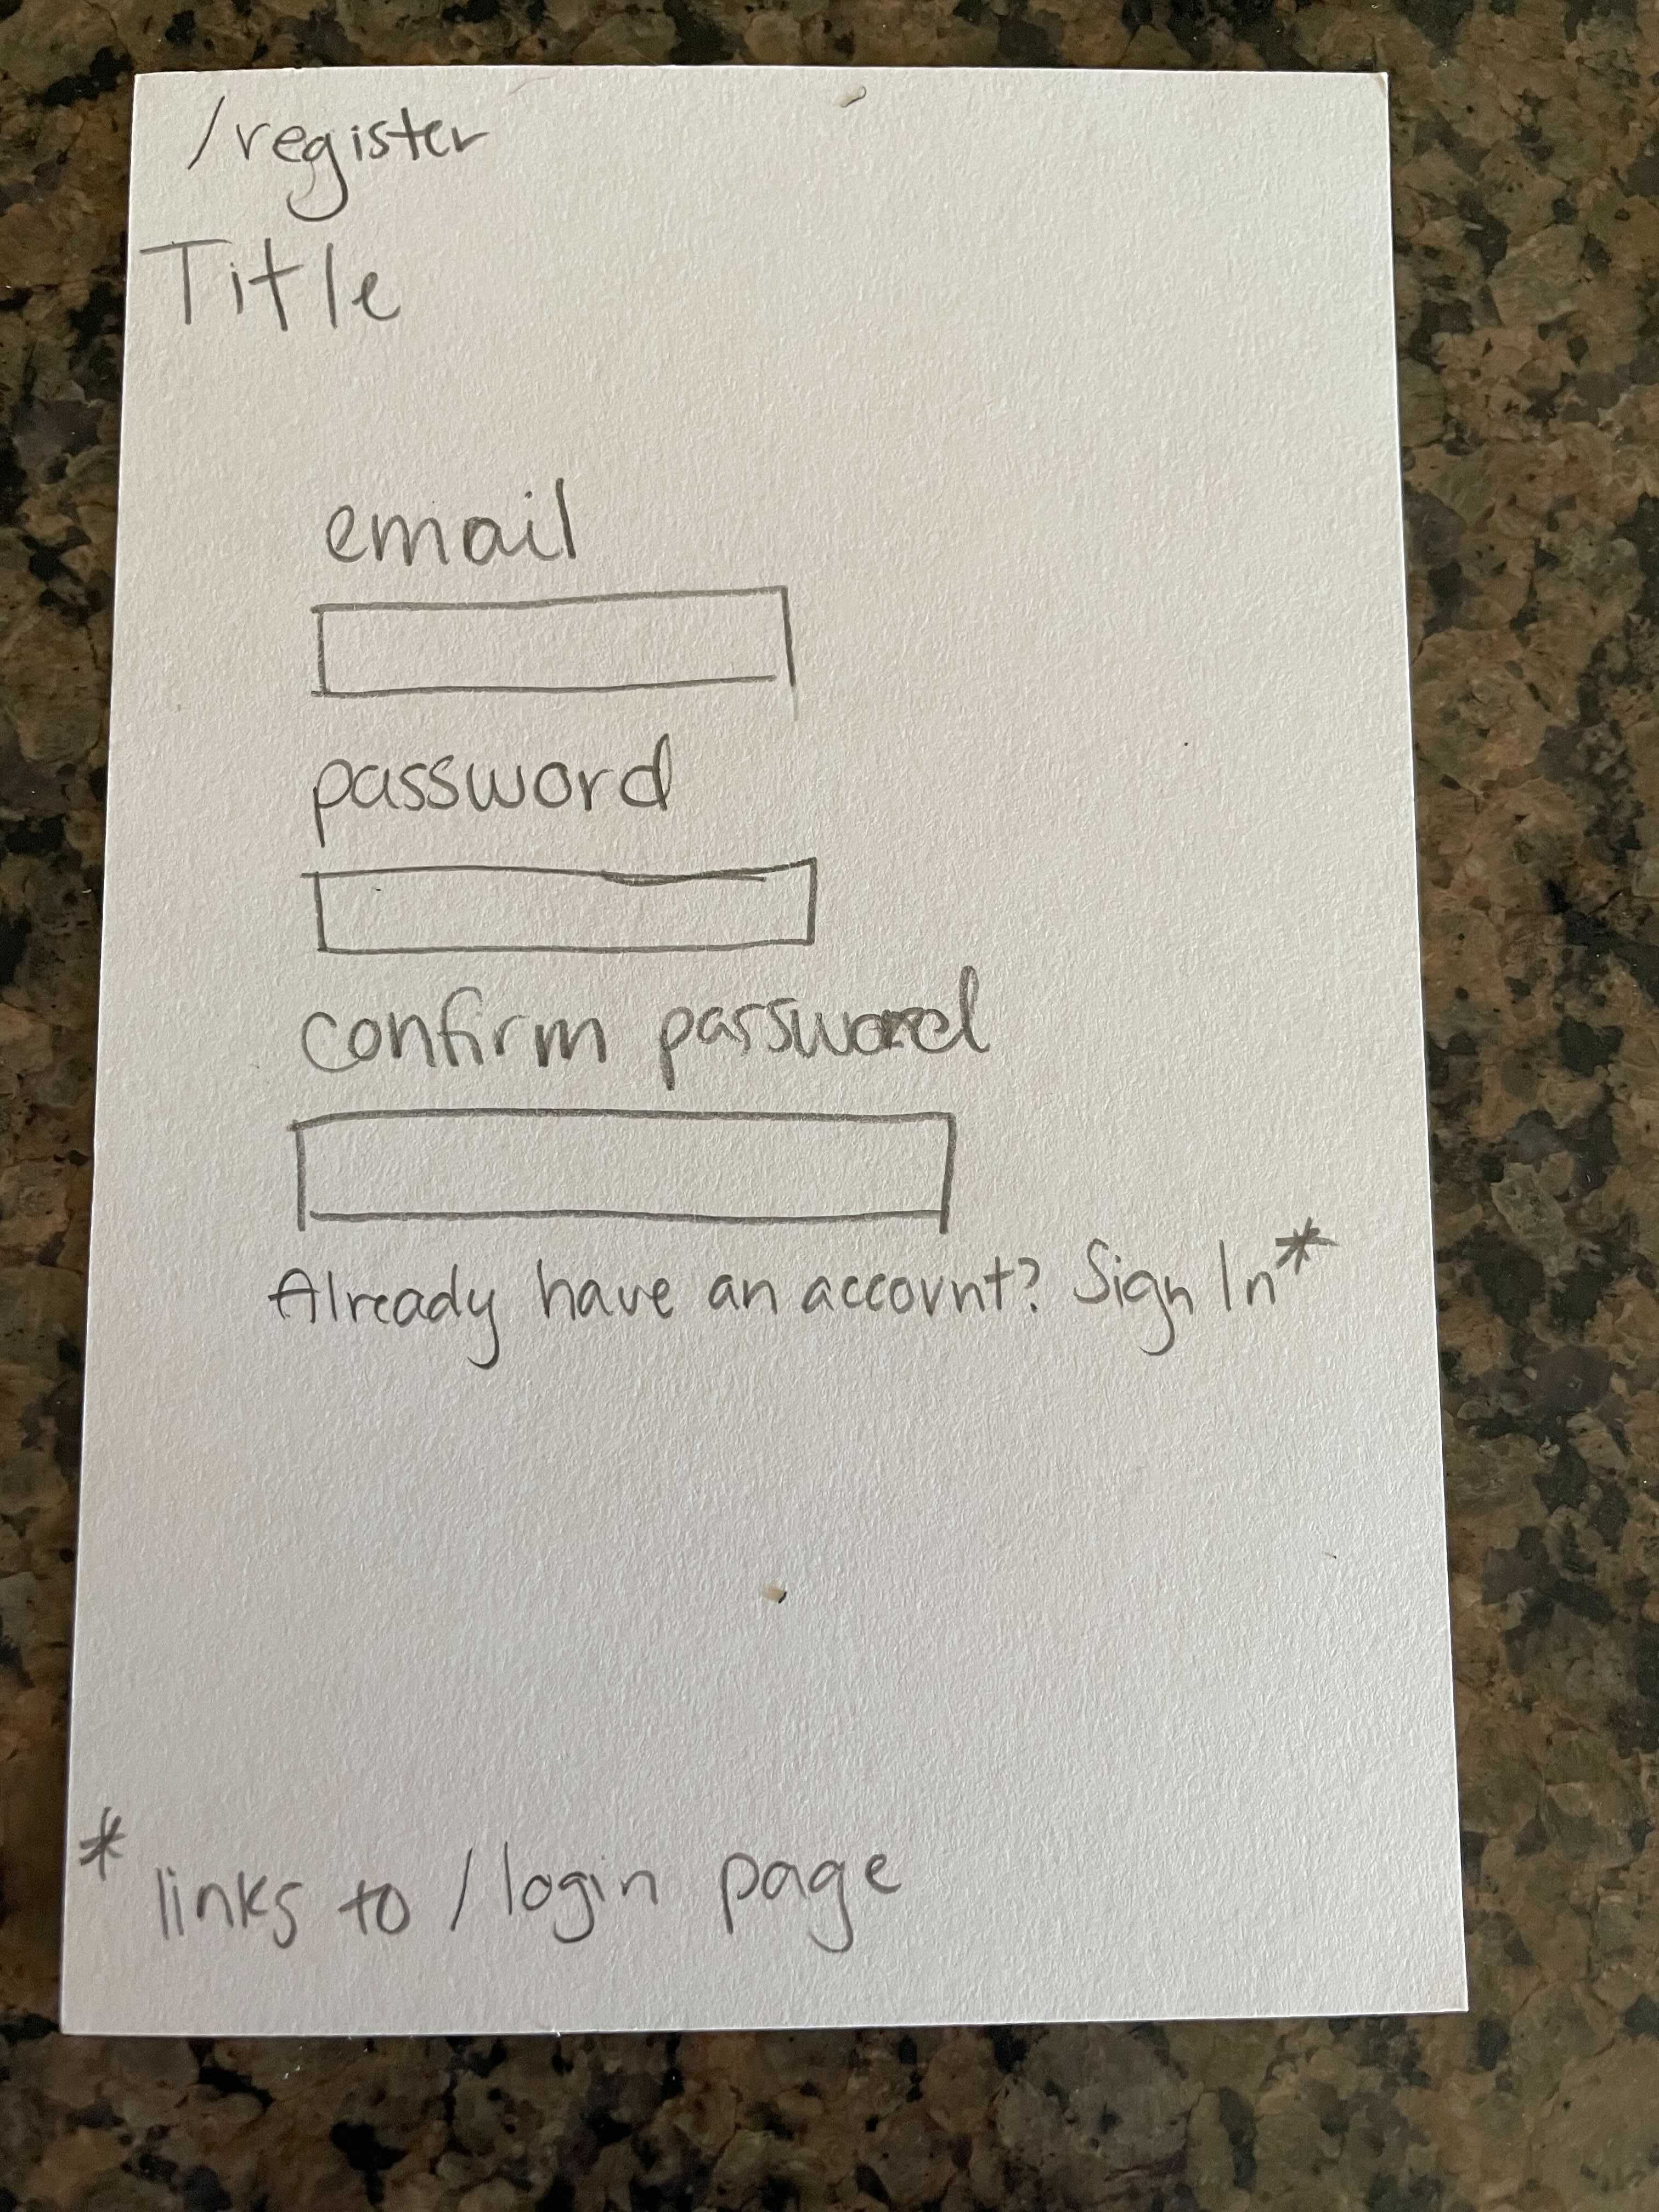 /register
Title
email
password
confirm password
Already have an account? Sign In*
* links to /login page